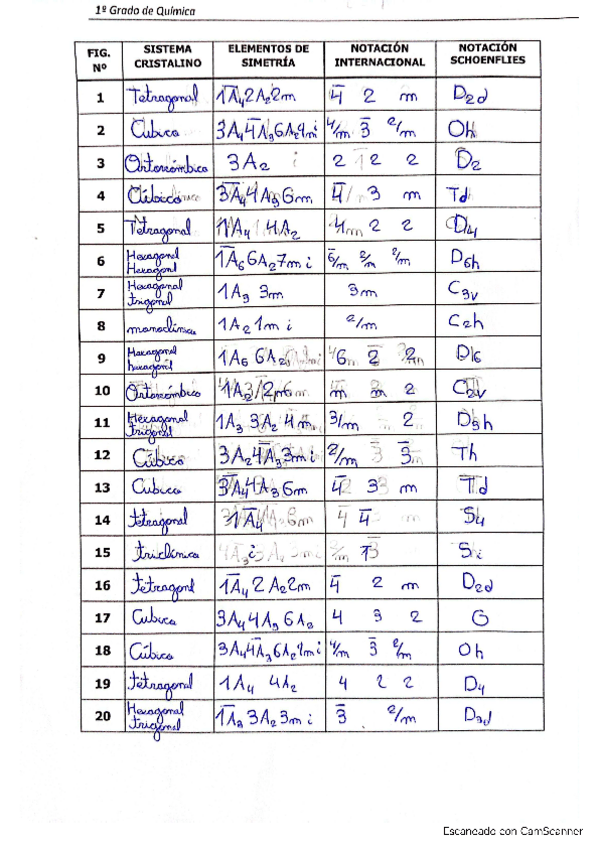 1º Grado de Química
FIG. Nº SISTEMA CRISTALINO ELEMENTOS DE SIMETRÍA NOTACIÓN INTERNACIONAL NOTACIÓN SCHOENFLIES
1 Tetragonal 1A̅₄2A₂2m 4̅ 2 m D₂d
2 Cúbico 3A₄4A̅₃6A₂9mi 4/m 3̅ 2/m Oh
3 Ortorrómbico 3A₂ 2 2 2 D₂
4 Cúbico 3A̅₄4A₃6m 4̅ 3 m Td
5 Tetragonal 1A₄ 4A₂ 4 2 2 D₄
6 Hexagonal Hexagonl 1A̅₆6A₂7mi 6/m 2/m 2/m D₆h
7 Hexagonal trigonal 1A₃ 3m 3m C₃v
8 monoclínico 1A₂1mi 2/m C₂h
9 Hexagonal hexagonal 1A₆ 6A₂ 6 2 2 D₆
10 Ortorrómbico 1A₂ 2m m m 2 C₂v
11 Hexagonal trigonal 1A₃ 3A₂ 4m 3/m 2 D₃h
12 Cúbico 3A₂4A̅₃3mi 2/m 3̅ Th
13 Cubico 3A̅₄4A₃6m 4̅ 3 m Td
14 tetragonal 1A̅₄ 4̅ S₄
15 triclínico i 1̅ Si
16 tetragonl 1A̅₄2A₂2m 4̅ 2 m D₂d
17 Cubico 3A₄4A₃6A₂ 4 3 2 O
18 Cúbico 3A₄4A̅₃6A₂9mi 4/m 3̅ 2/m Oh
19 tetragonal 1A₄ 4A₂ 4 2 2 D₄
20 Hexagonal trigonal 1A̅₃3A₂3mi 3̅ 2/m D₃d
Escaneado con CamScanner